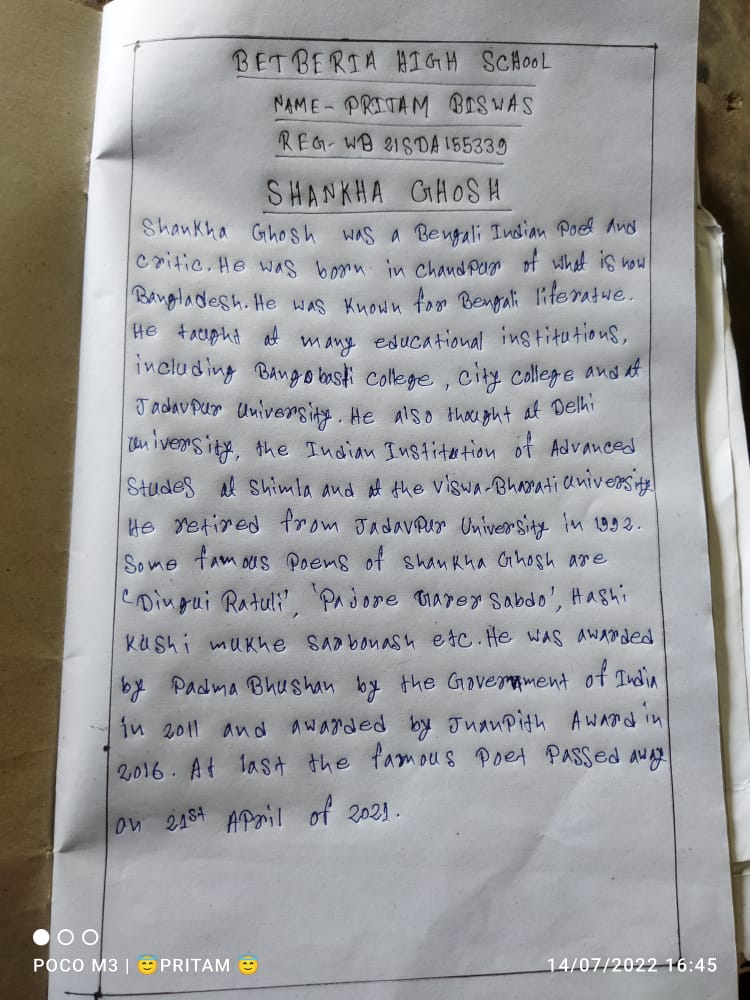 BETBERIA HIGH SCHOOL
NAME- PRITAM BISWAS
REG- WB 21SDA155339
SHANKHA GHOSH
Shankha Ghosh was a Bengali Indian Poet and
critic. He was born in chandpur of what is now
Bangladesh. He was known for Bengali literature.
He taught at many educational institutions,
including Bangobasti college, city college and at
Jadavpur university. He also thought at Delhi
university, the Indian Institution of Advanced
Studes at Shimla and at the Viswa-Bharati university
He retired from Jadavpur University in 1992.
Some famous Poems of shankha Ghosh are
'Dingui Ratuli', 'Pajore Sabdo', Hashi
Kushi mukhe sarbonash etc. He was awarded
by Padma Bhushan by the Government of India
in 2011 and awarded by Jnanpith Award in
2016. At last the famous poet Passed away
on 21st April of 2021.
POCO M3 | 😇PRITAM 😇
14/07/2022 16:45